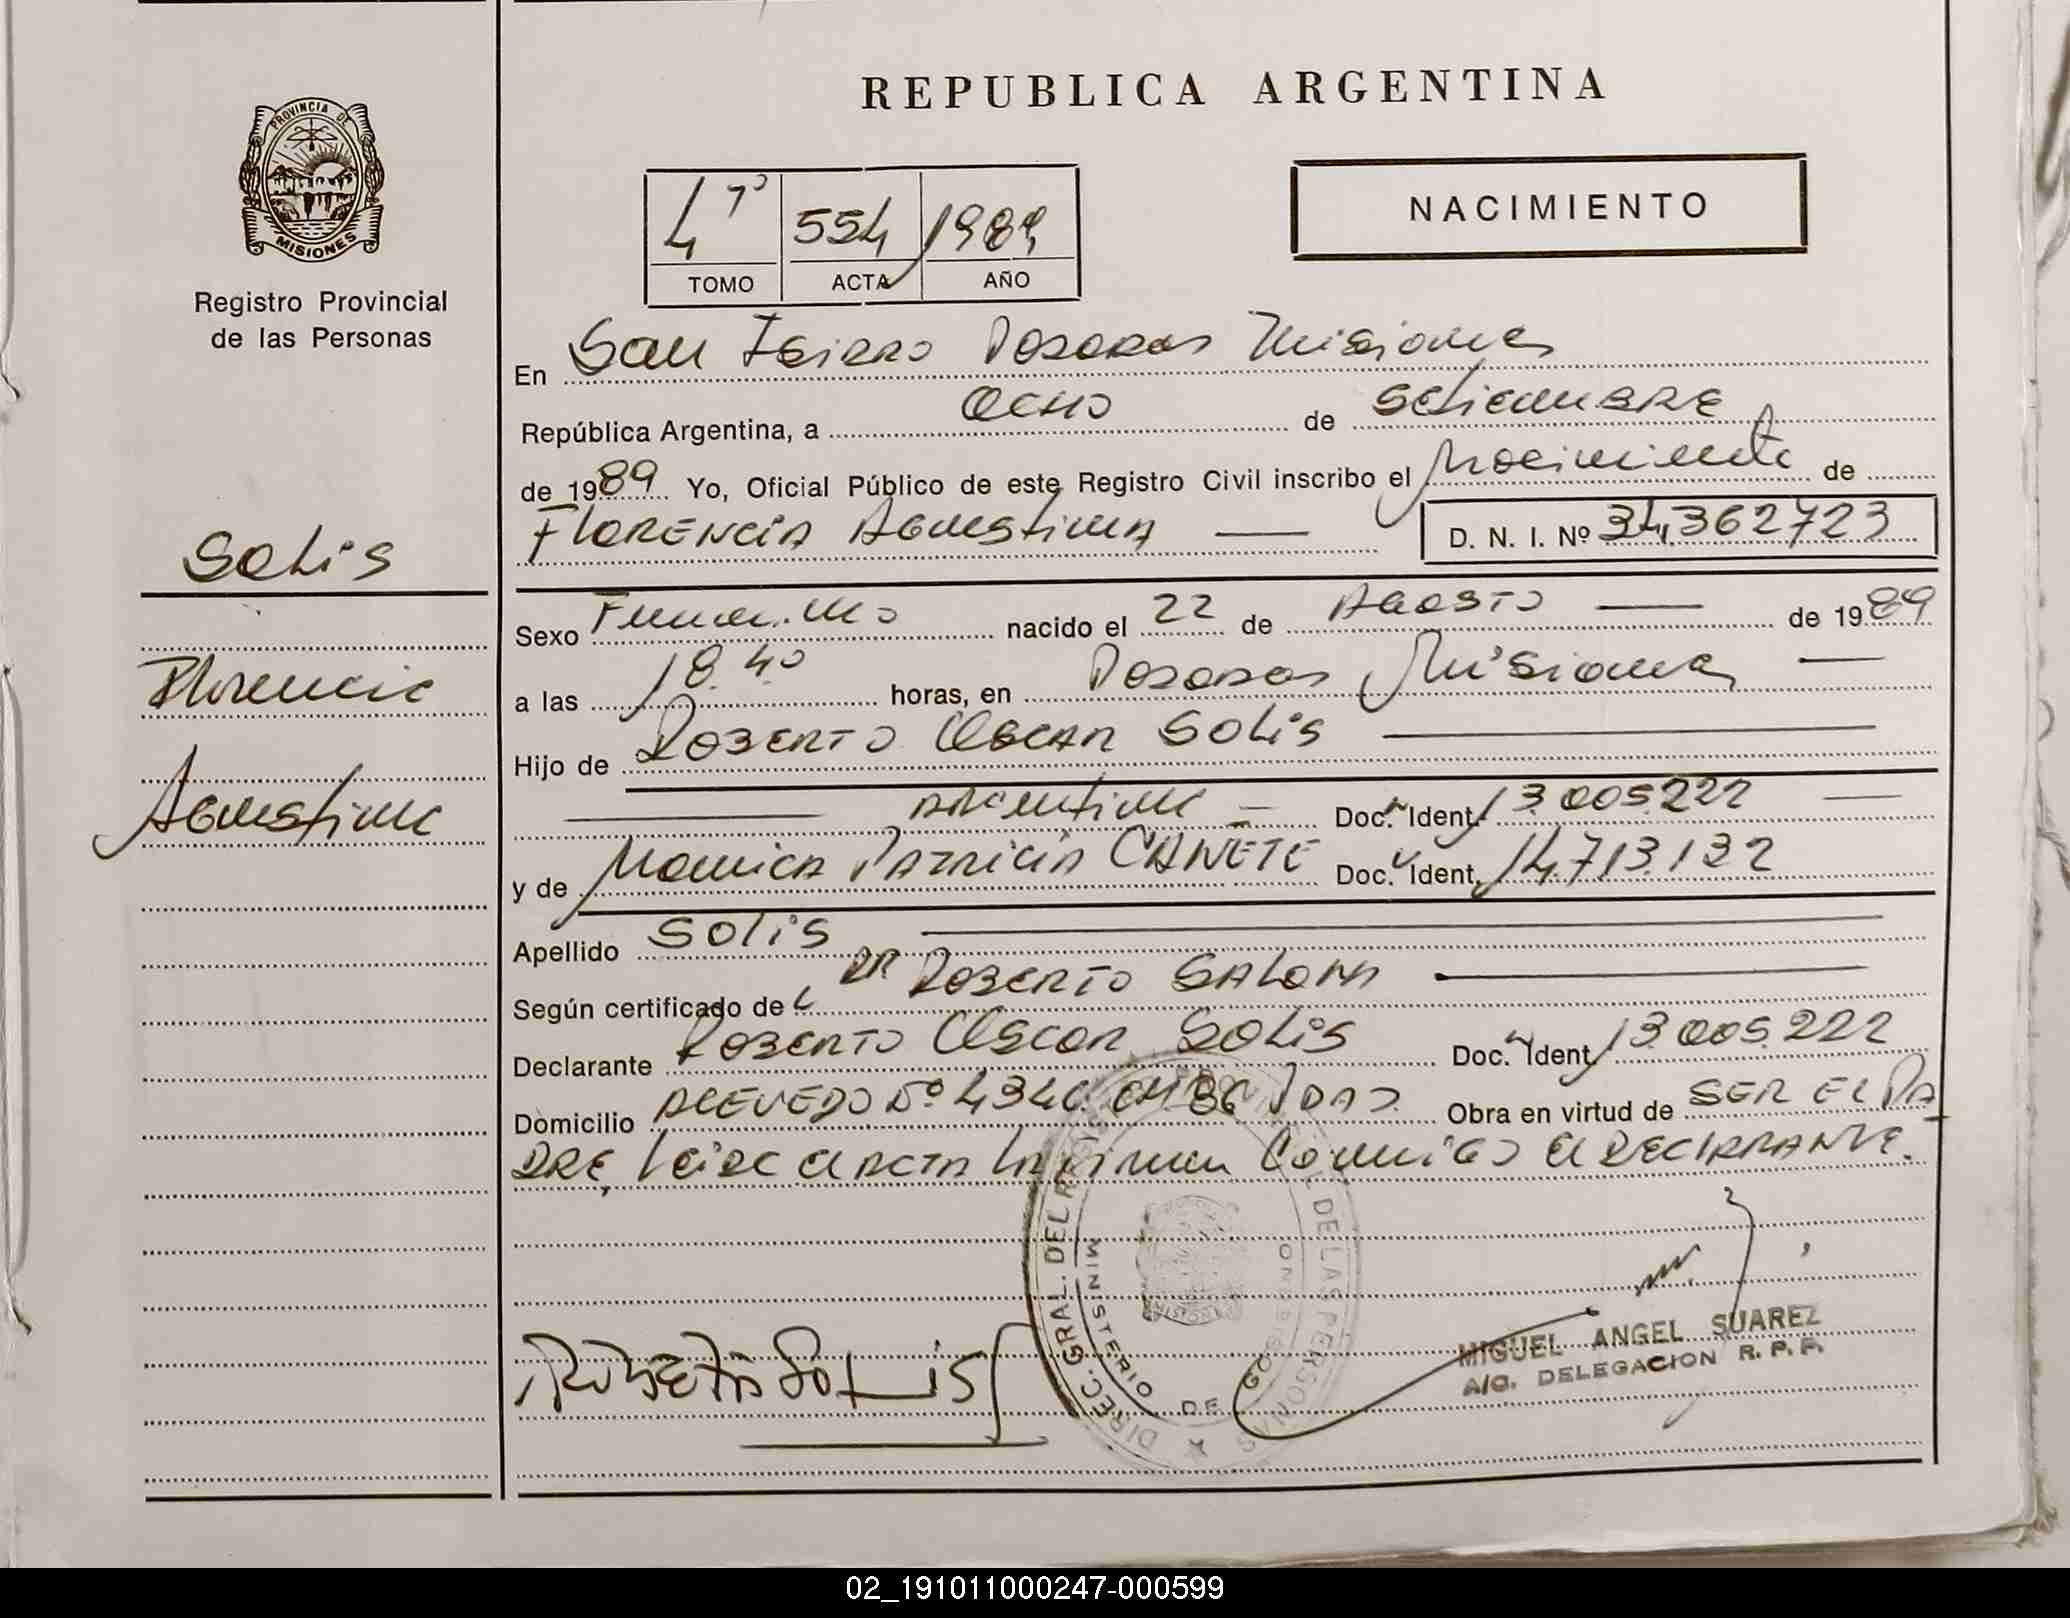 REPUBLICA ARGENTINA
PROVINCIA DE
MISIONES
Registro Provincial
de las Personas
4º 554 1989
TOMO ACTA AÑO
NACIMIENTO
En San Isidro Posadas Misiones
República Argentina, a Ocho de Setiembre
de 1989 Yo, Oficial Público de este Registro Civil inscribo el Nacimiento de
Florencia Agustina D. N. I. Nº 34.362723
Solis
Florencia
Agustina
Sexo Femenino nacido el 22 de Agosto de 1989
a las 18.40 horas, en Posadas Misiones
Hijo de Roberto Oscar Solis
Argentina Doc. Ident. 13.005.222
y de Monica Patricia CAÑETE Doc. Ident. 14.713.132
Apellido Solis
Según certificado de DR Roberto Salom
Declarante Roberto Oscar Solis Doc. Ident. 13.005.222
Domicilio Acevedo Nº 4346 CH 86 Pdas. Obra en virtud de SER EL PA
DRE, Leida el acta la firma Conmigo el DECLARANTE.
DIREC. GRAL. DEL DE LAS PERSONAS
MINISTERIO DE GOBIERNO
MISIONES
Roberto Solis
MIGUEL ANGEL SUAREZ
A/C. DELEGACION R. P. P.
02_191011000247-000599